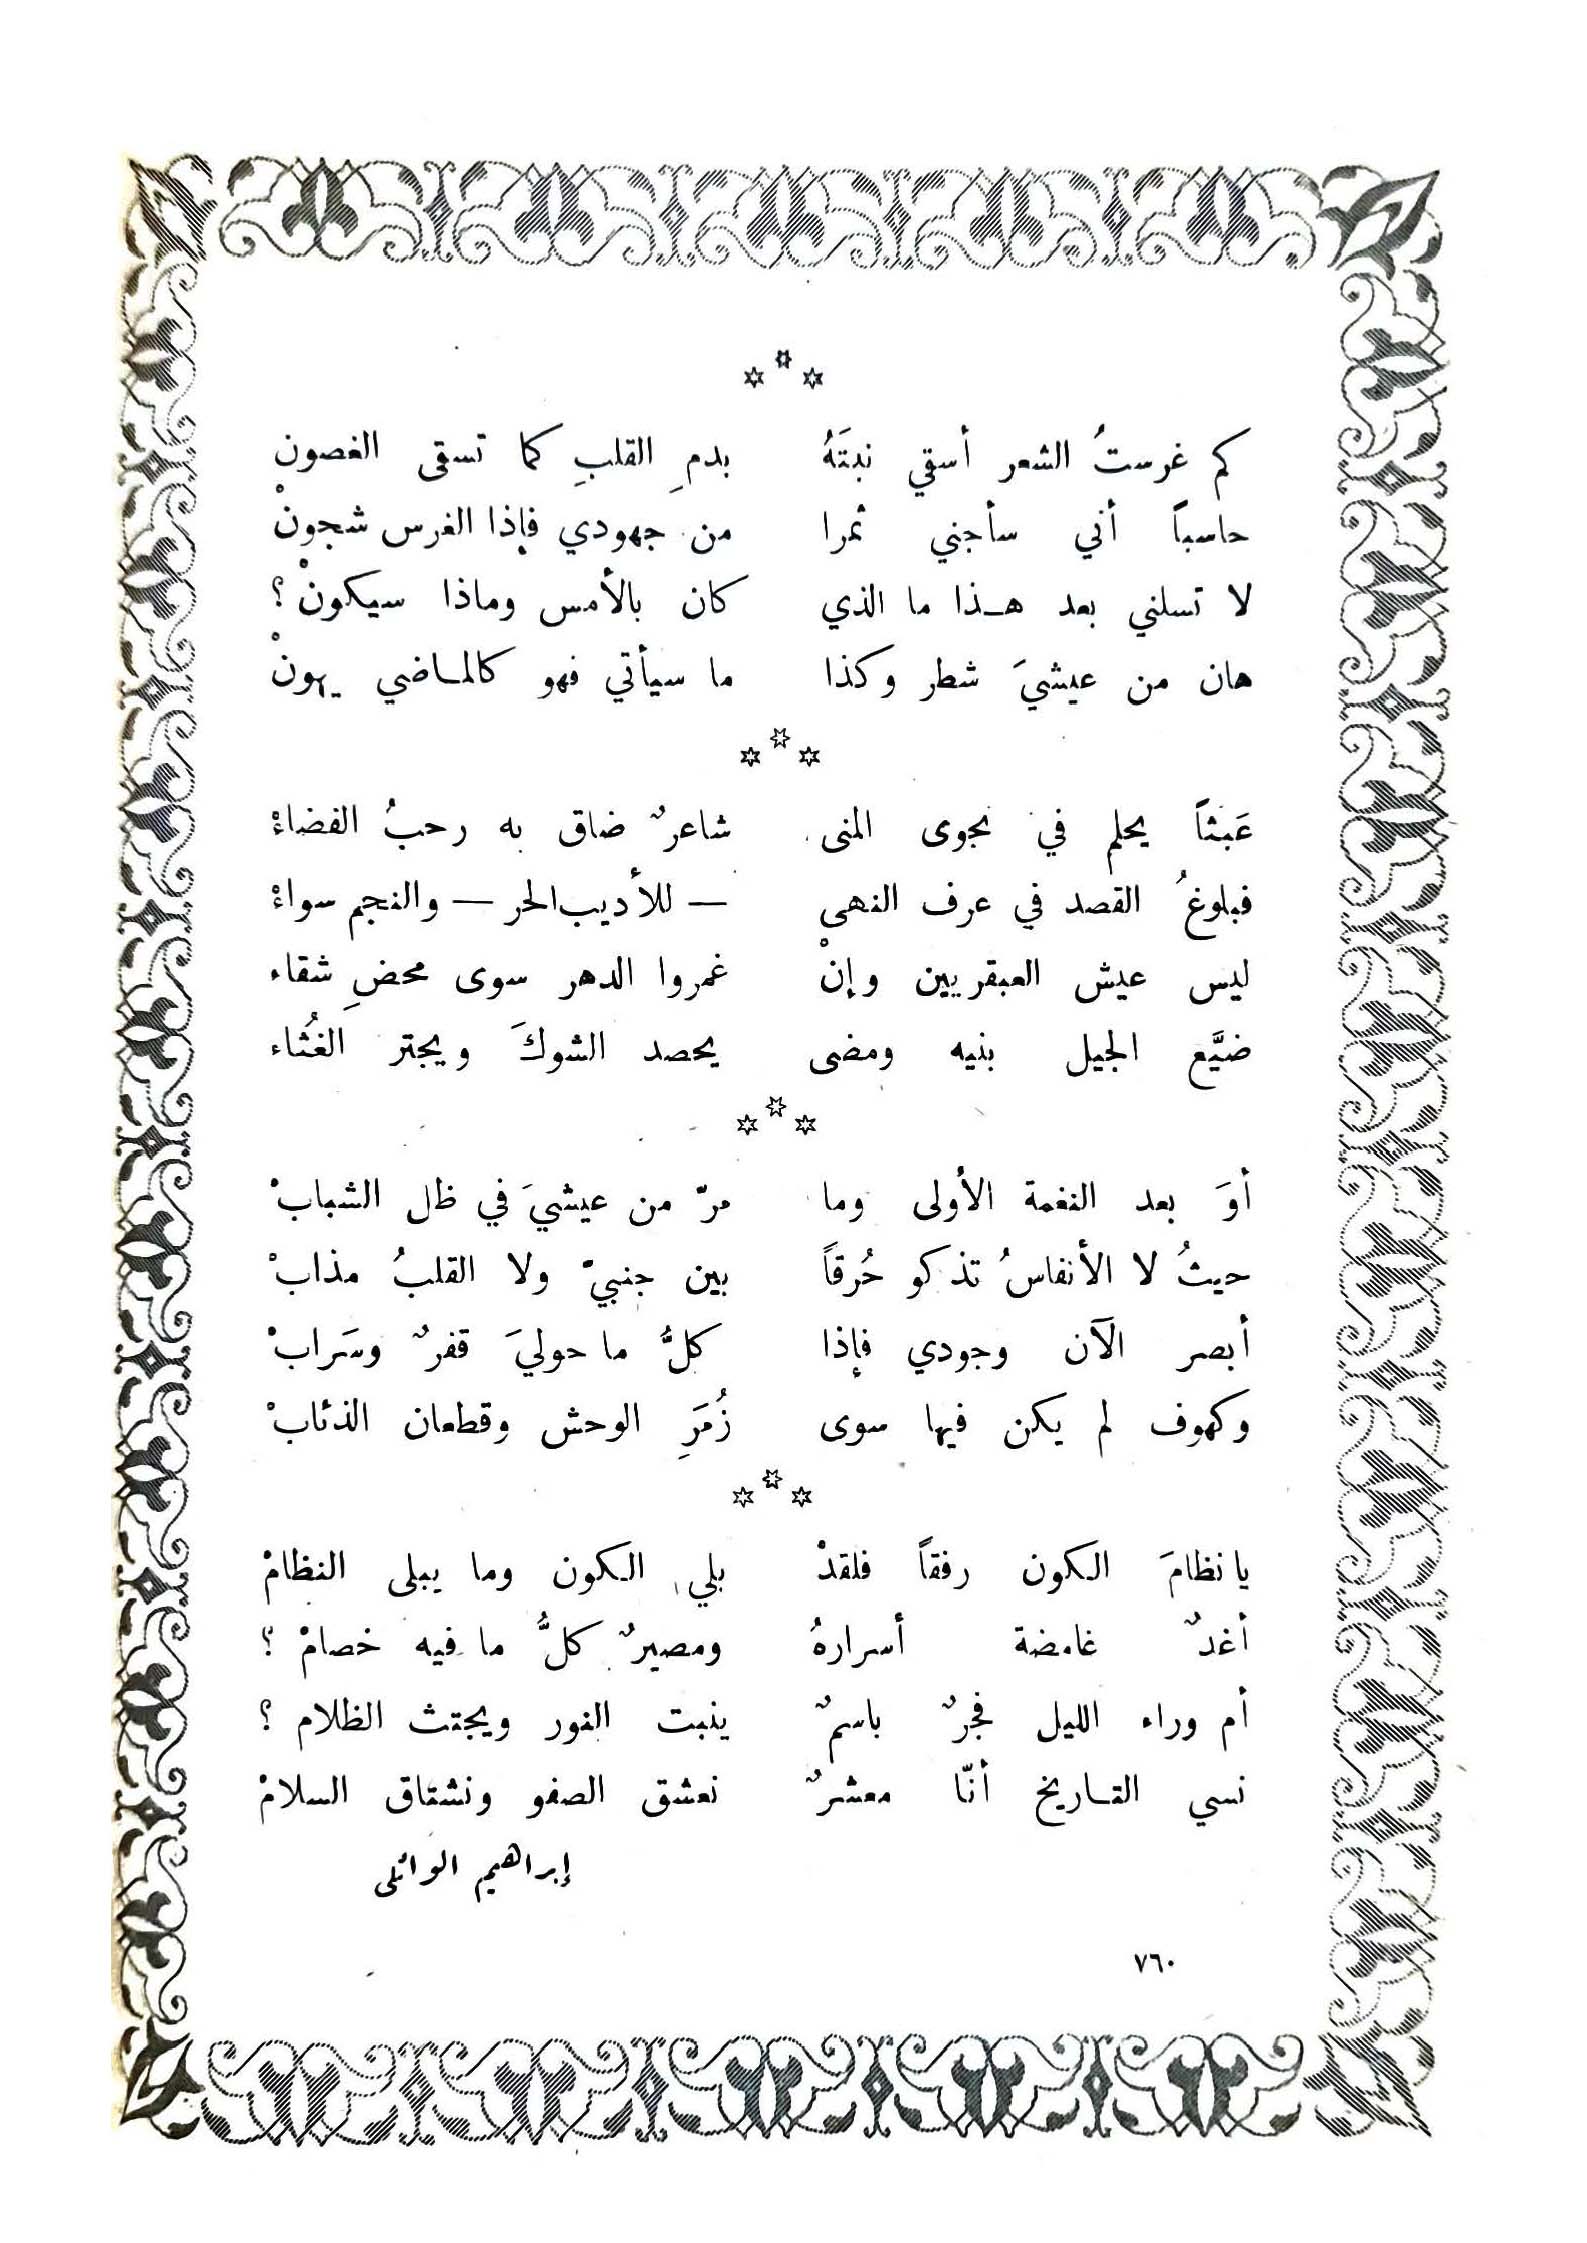 * * *
كم غرستُ الشعر أسقي نبتَهُ بدمِ القلبِ كما تسقى الغصونْ
حاسباً أني سأجني ثمرا من جهودي فإذا الغرس شجونْ
لا تسلني بعد هـذا ما الذي كان بالأمس وماذا سيكونْ ؟
هان من عيشيَ شطر وكذا ما سيأتي فهو كالمـاضي يهونْ
* * *
عَبثاً يحلم في نجوى المنى شاعرٌ ضاق به رحبُ الفضاءْ
فبلوغُ القصد في عرف النهى — للأديب الحر — والنجم سواءْ
ليس عيش العبقريين وإنْ غمروا الدهر سوى محضِ شقاء
ضيَّع الجيل بنيه ومضى يحصد الشوكَ ويجتر الغُثاء
* * *
أوَ بعد النغمة الأولى وما مرّ من عيشيَ في ظل الشبابْ
حيثُ لا الأنفاسُ تذكو حُرقاً بين جنبيّ ولا القلبُ مذابْ
أبصر الآن وجودي فإذا كلُّ ما حوليَ قفرٌ وسَرابْ
وكهوف لم يكن فيها سوى زُمَرِ الوحش وقطعان الذئابْ
* * *
يا نظامَ الكون رفقاً فلقدْ بلي الكون وما يبلى النظامْ
أغدٌ غامضة أسرارهُ ومصيرٌ كلُّ ما فيه خصامْ ؟
أم وراء الليل فجرٌ باسمٌ ينبت النور ويجتث الظلام ؟
نسي التـاريخ أنّا معشرٌ نعشق الصفو ونشتاق السلامْ
إبراهيم الوائلى
٧٦٠